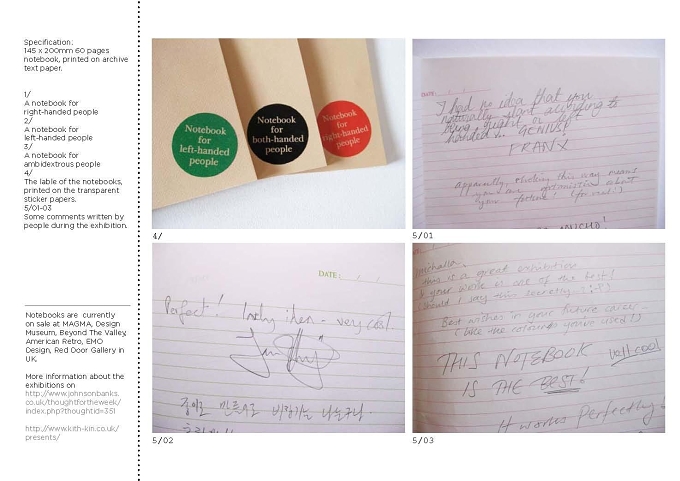 Specification:
145 x 200mm 60 pages
notebook, printed on archive
text paper.
1/
A notebook for
right-handed people
2/
A notebook for
left-handed people
3/
A notebook for
ambidextrous people
4/
The lable of the notebooks,
printed on the transparent
sticker papers.
5/01-03
Some comments written by
people during the exhibition.
Notebooks are currently
on sale at MAGMA, Design
Museum, Beyond The Valley,
American Retro, EMO
Design, Red Door Gallery in
UK.
More information about the
exhibitions on
http://www.johnsonbanks.
co.uk/thoughtfortheweek/
index.php?thoughtid=351
http://www.kith-kin.co.uk/
presents/
Notebook
for
left-handed
people
Notebook
for
both-handed
people
Notebook
for
right-handed
people
4/
DATE
I had no idea that you
naturally slant according to
being right or left
handed... GENIUS!
FRANX
Apparently, this way means
you are optimistic about
your future! (for real!)
5/01
DATE: / /
Perfect! lovely idea - very cool.
5/02
this is a great exhibition
& your work is one of the best!
(should I say so secretly? ;-))
Best wishes in your future career
(like the colours you've used!)
THIS NOTEBOOK well cool
IS THE BEST!
It works Perfectly!
5/03